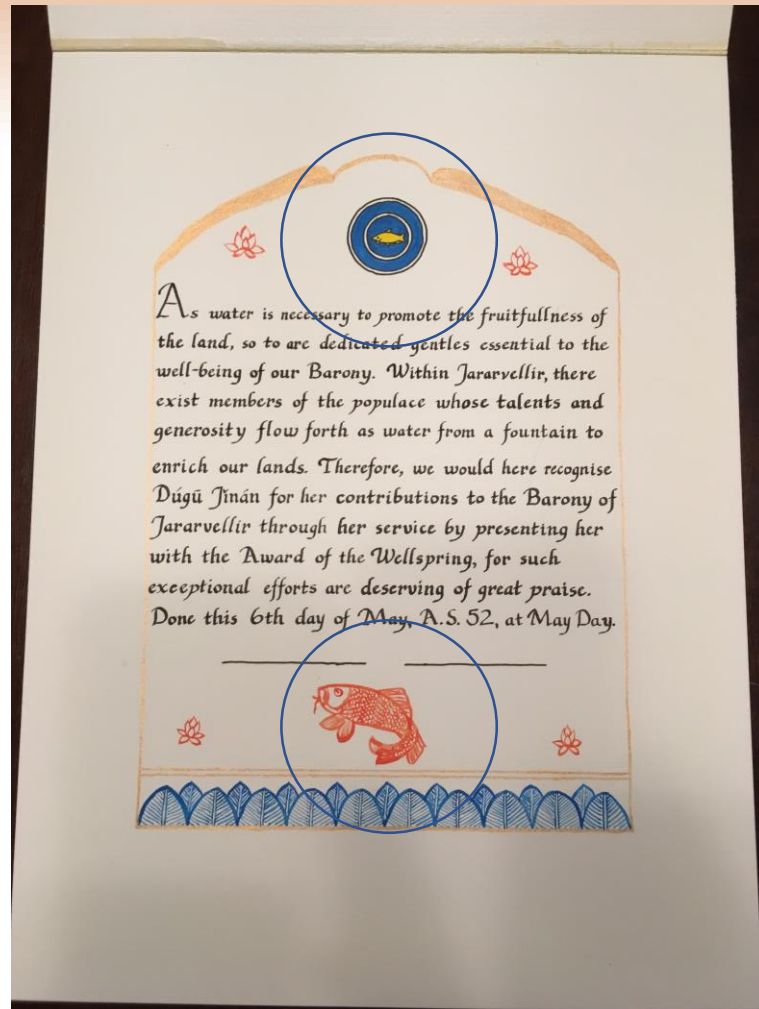 As water is necessary to promote the fruitfullness of
the land, so to are dedicated gentles essential to the
well-being of our Barony. Within Jararvellir, there
exist members of the populace whose talents and
generosity flow forth as water from a fountain to
enrich our lands. Therefore, we would here recognise
Dúgū Jìnán for her contributions to the Barony of
Jararvellir through her service by presenting her
with the Award of the Wellspring, for such
exceptional efforts are deserving of great praise.
Done this 6th day of May, A.S. 52, at May Day.